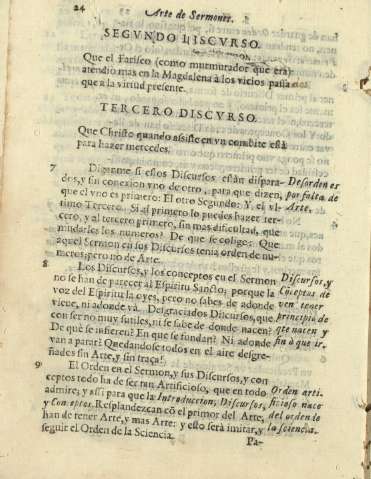 24
Arte de Sermones.
SEGVNDO DISCVRSO.
Que el Fariseo (como murmurador que era)
atendio mas en la Magdalena à los vicios passa dos
que a la virtud presente.
TERCERO DISCVRSO.
Que Christo quando assiste en vn combite està
para hazer mercedes.
7 Diganme si essos Discursos estàn dispara-
dos, y sin conexion vno de otro, para que dizen,
que el vno es primero: El otro Segundo: Y el vl-
timo Tercero. Si al primero lo puedes hazer ter-
cero, y al tercero primero, sin mas dificultad, que
mudarles los numeros? De que se colige: Que
aquel Sermon en sus Discursos tenia orden de nu-
meros; pero no de Arte.
Desorden es
por falta de
Arte.
8 Los Discursos, y los conceptos en el Sermon
no se han de parecer al Espiritu Santo, porque la
voz del Espiritu la oyes, pero no sabes de adonde
viene, ni adonde và. Desgraciados Discursos, que
con ser no muy sutiles, ni se sabe de donde nacen?
De què se infieren? En que se fundan? Ni adonde
van a parar? Quedandose todos en el aire desgre-
ñados sin Arte, y sin traça!
Discursos, y
Cōceptos de
ven tener
principio de
que nacen y
fin à que ir.
9 El Orden en el Sermon, y sus Discursos, y con
ceptos todo ha de ser tan Artificioso, que en todo
admire; y assi para que la Introduccion, Discursos,
y Conceptos. Resplandezcan cō el primor del Arte,
han de tener Arte, y mas Arte: y esto serà imitar, y
seguir el Orden de la Sciencia.
Orden arti-
ficioso nace
del orden de
la sciencia.
Pa-